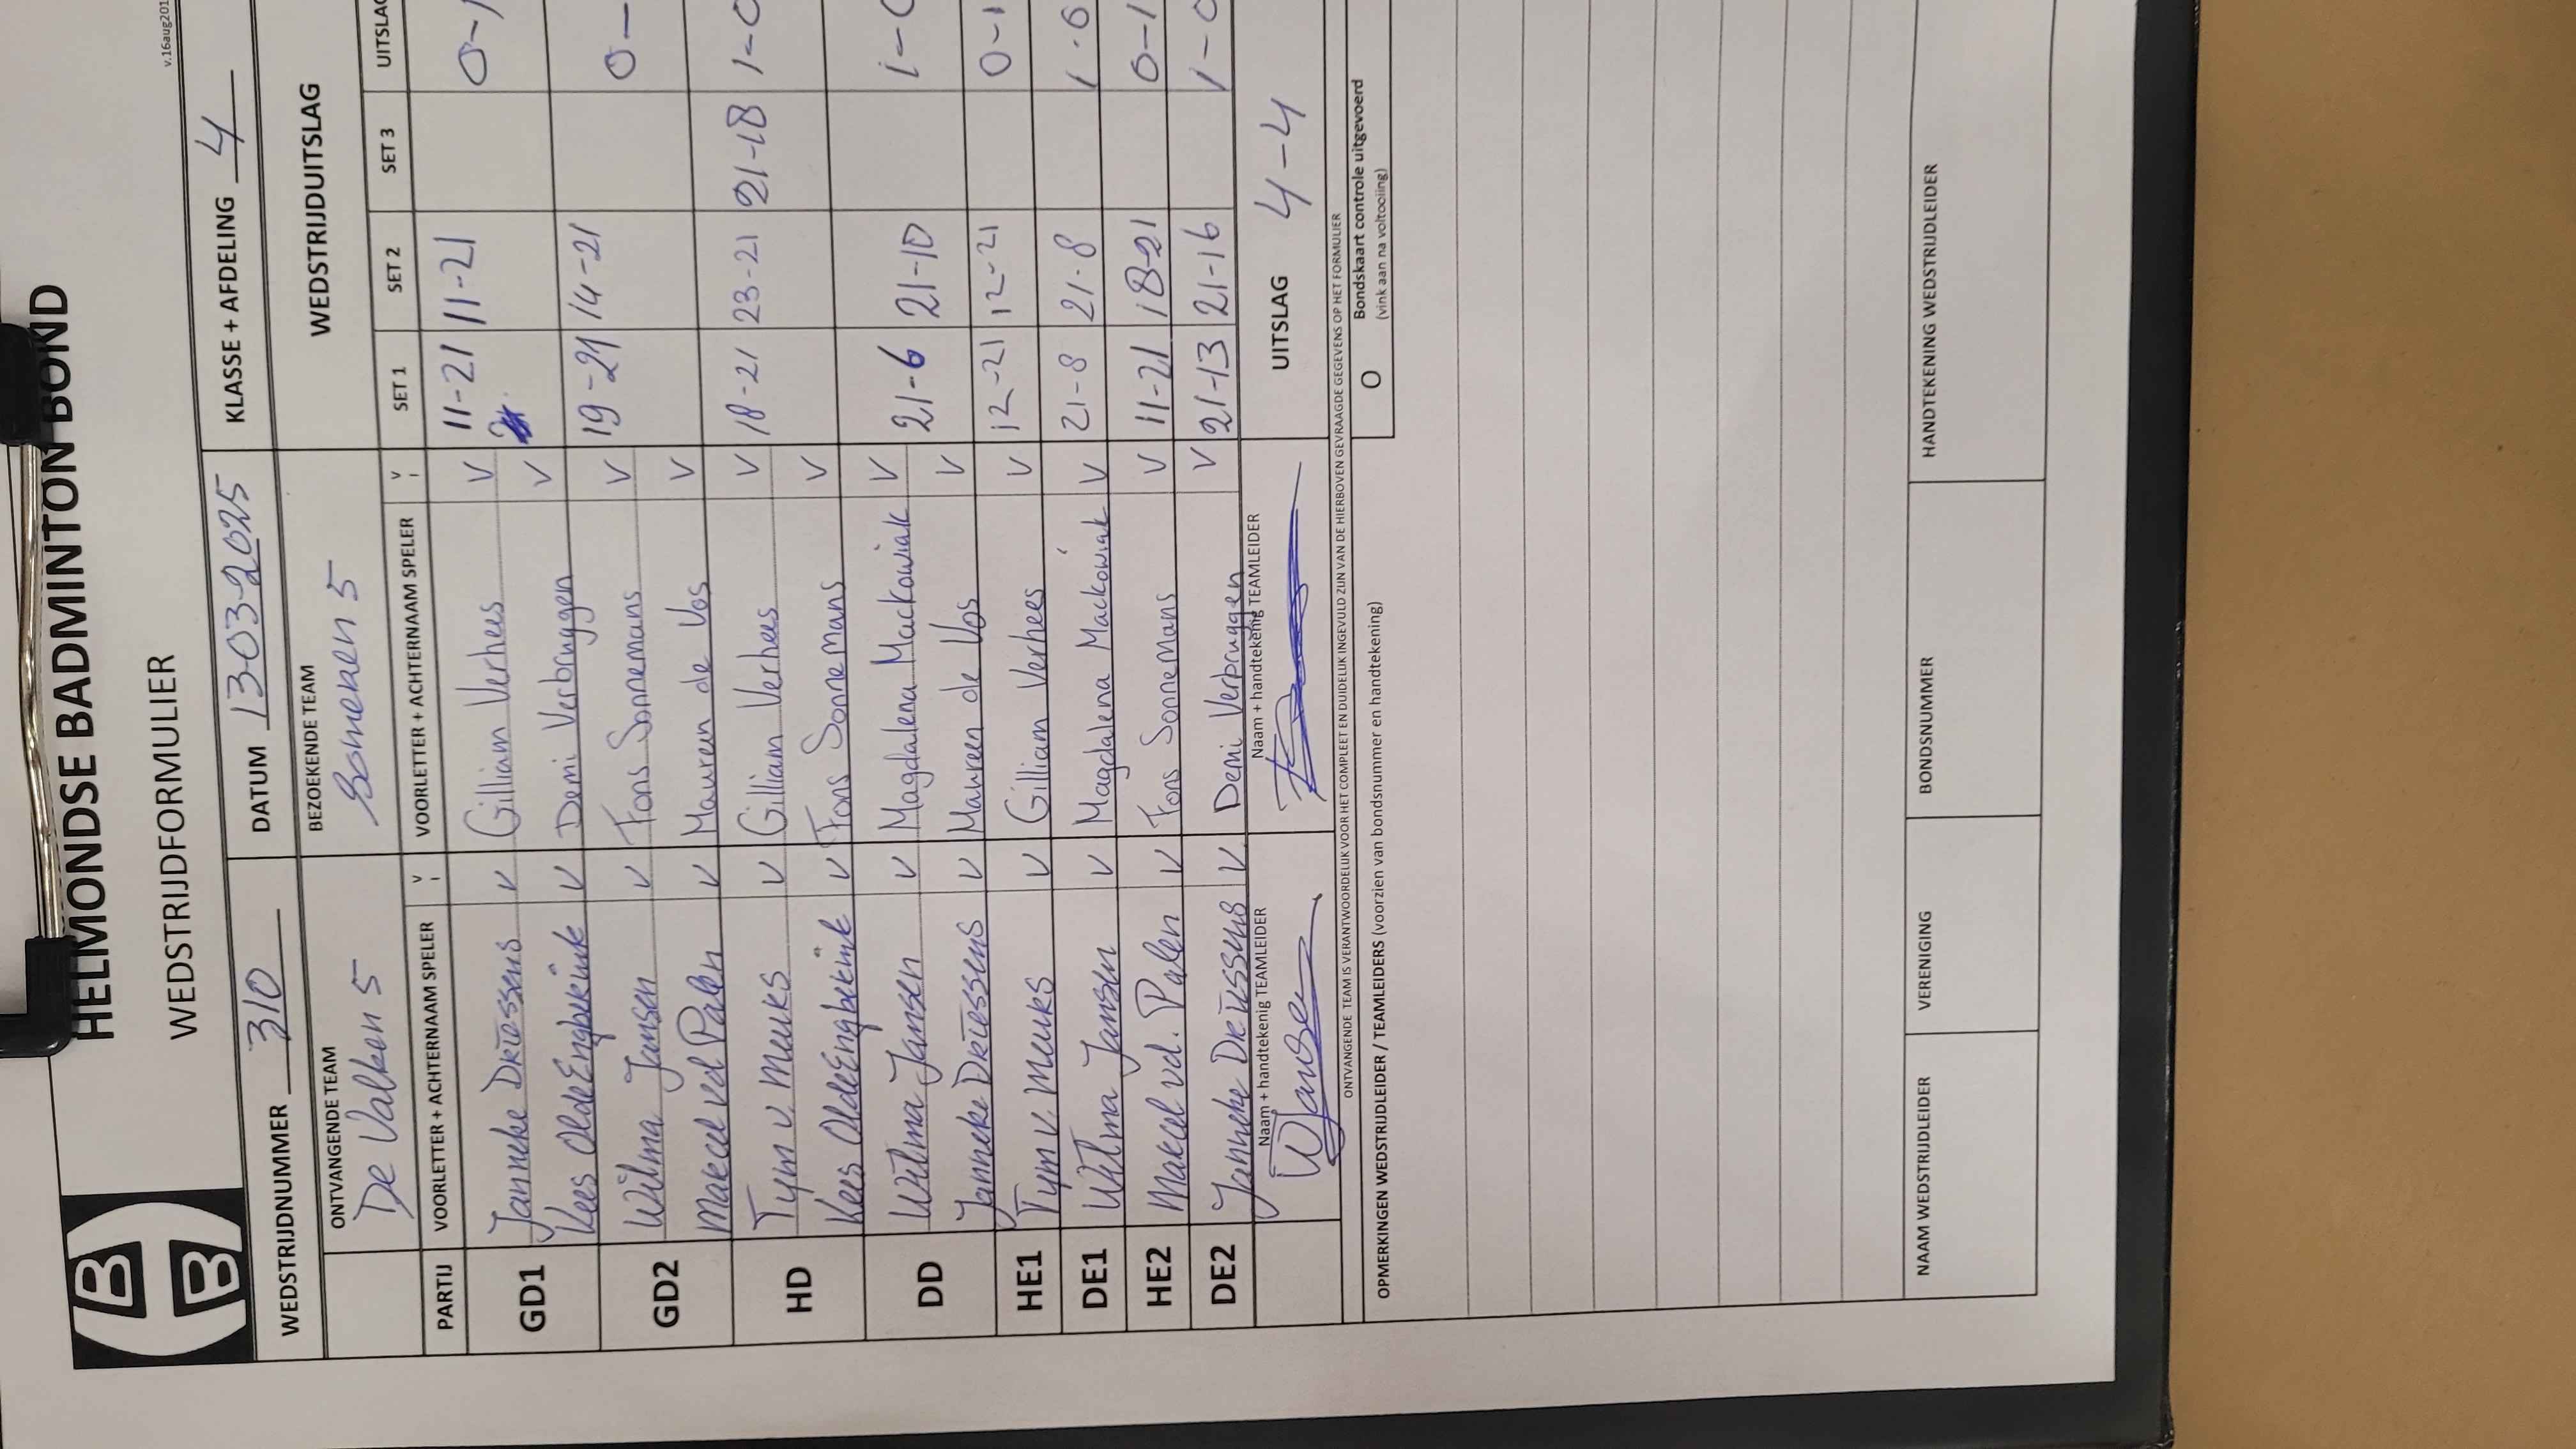 HELMONDSE BADMINTON BOND
WEDSTRIJDFORMULIER
v.16aug201
WEDSTRIJDNUMMER 310 DATUM 13-03-2025 KLASSE + AFDELING 4
ONTVANGENDE TEAM BEZOEKENDE TEAM WEDSTRIJDUITSLAG
De Valken 5 Someren 5
PARTIJ VOORLETTER + ACHTERNAAM SPELER V VOORLETTER + ACHTERNAAM SPELER V SET 1 SET 2 SET 3 UITSLAG
GD1 Janneke Driessens V Gilliam Verhees V 11-21 11-21 0-1
Kees OldeEngberink V Demi Verbruggen V
GD2 Wilma Jansen V Fons Sonnemans V 19-21 14-21 0-
Marcel vd Palen V Maureen de Vos V
HD Tym v. Meuks V Gilliam Verhees V 18-21 23-21 21-18 1-0
Kees OldeEngberink V Fons Sonnemans V
DD Wilma Jansen V Magdalena Mackowiak V 21-6 21-10 1-0
Janneke Driessens V Maureen de Vos V
HE1 Tym v. Meuks V Gilliam Verhees V 12-21 12-21 0-1
DE1 Wilma Jansen V Magdalena Mackowiak V 21-8 21-8 1-0
HE2 Marcel vd. Palen V Fons Sonnemans V 11-21 18-21 0-1
DE2 Janneke Driessens V Demi Verbruggen V 21-13 21-16 1-0
Naam + handtekenig TEAMLEIDER Naam + handtekenig TEAMLEIDER UITSLAG 4-4
WJansen
ONTVANGENDE TEAM IS VERANTWOORDELIJK VOOR HET COMPLEET EN DUIDELIJK INGEVULD ZIJN VAN DE HIERBOVEN GEVRAAGDE GEGEVENS OP HET FORMULIER
OPMERKINGEN WEDSTRIJDLEIDER / TEAMLEIDERS (voorzien van bondsnummer en handtekening)
O Bondskaart controle uitgevoerd
(vink aan na voltooiing)
NAAM WEDSTRIJDLEIDER VERENIGING BONDSNUMMER HANDTEKENING WEDSTRIJDLEIDER